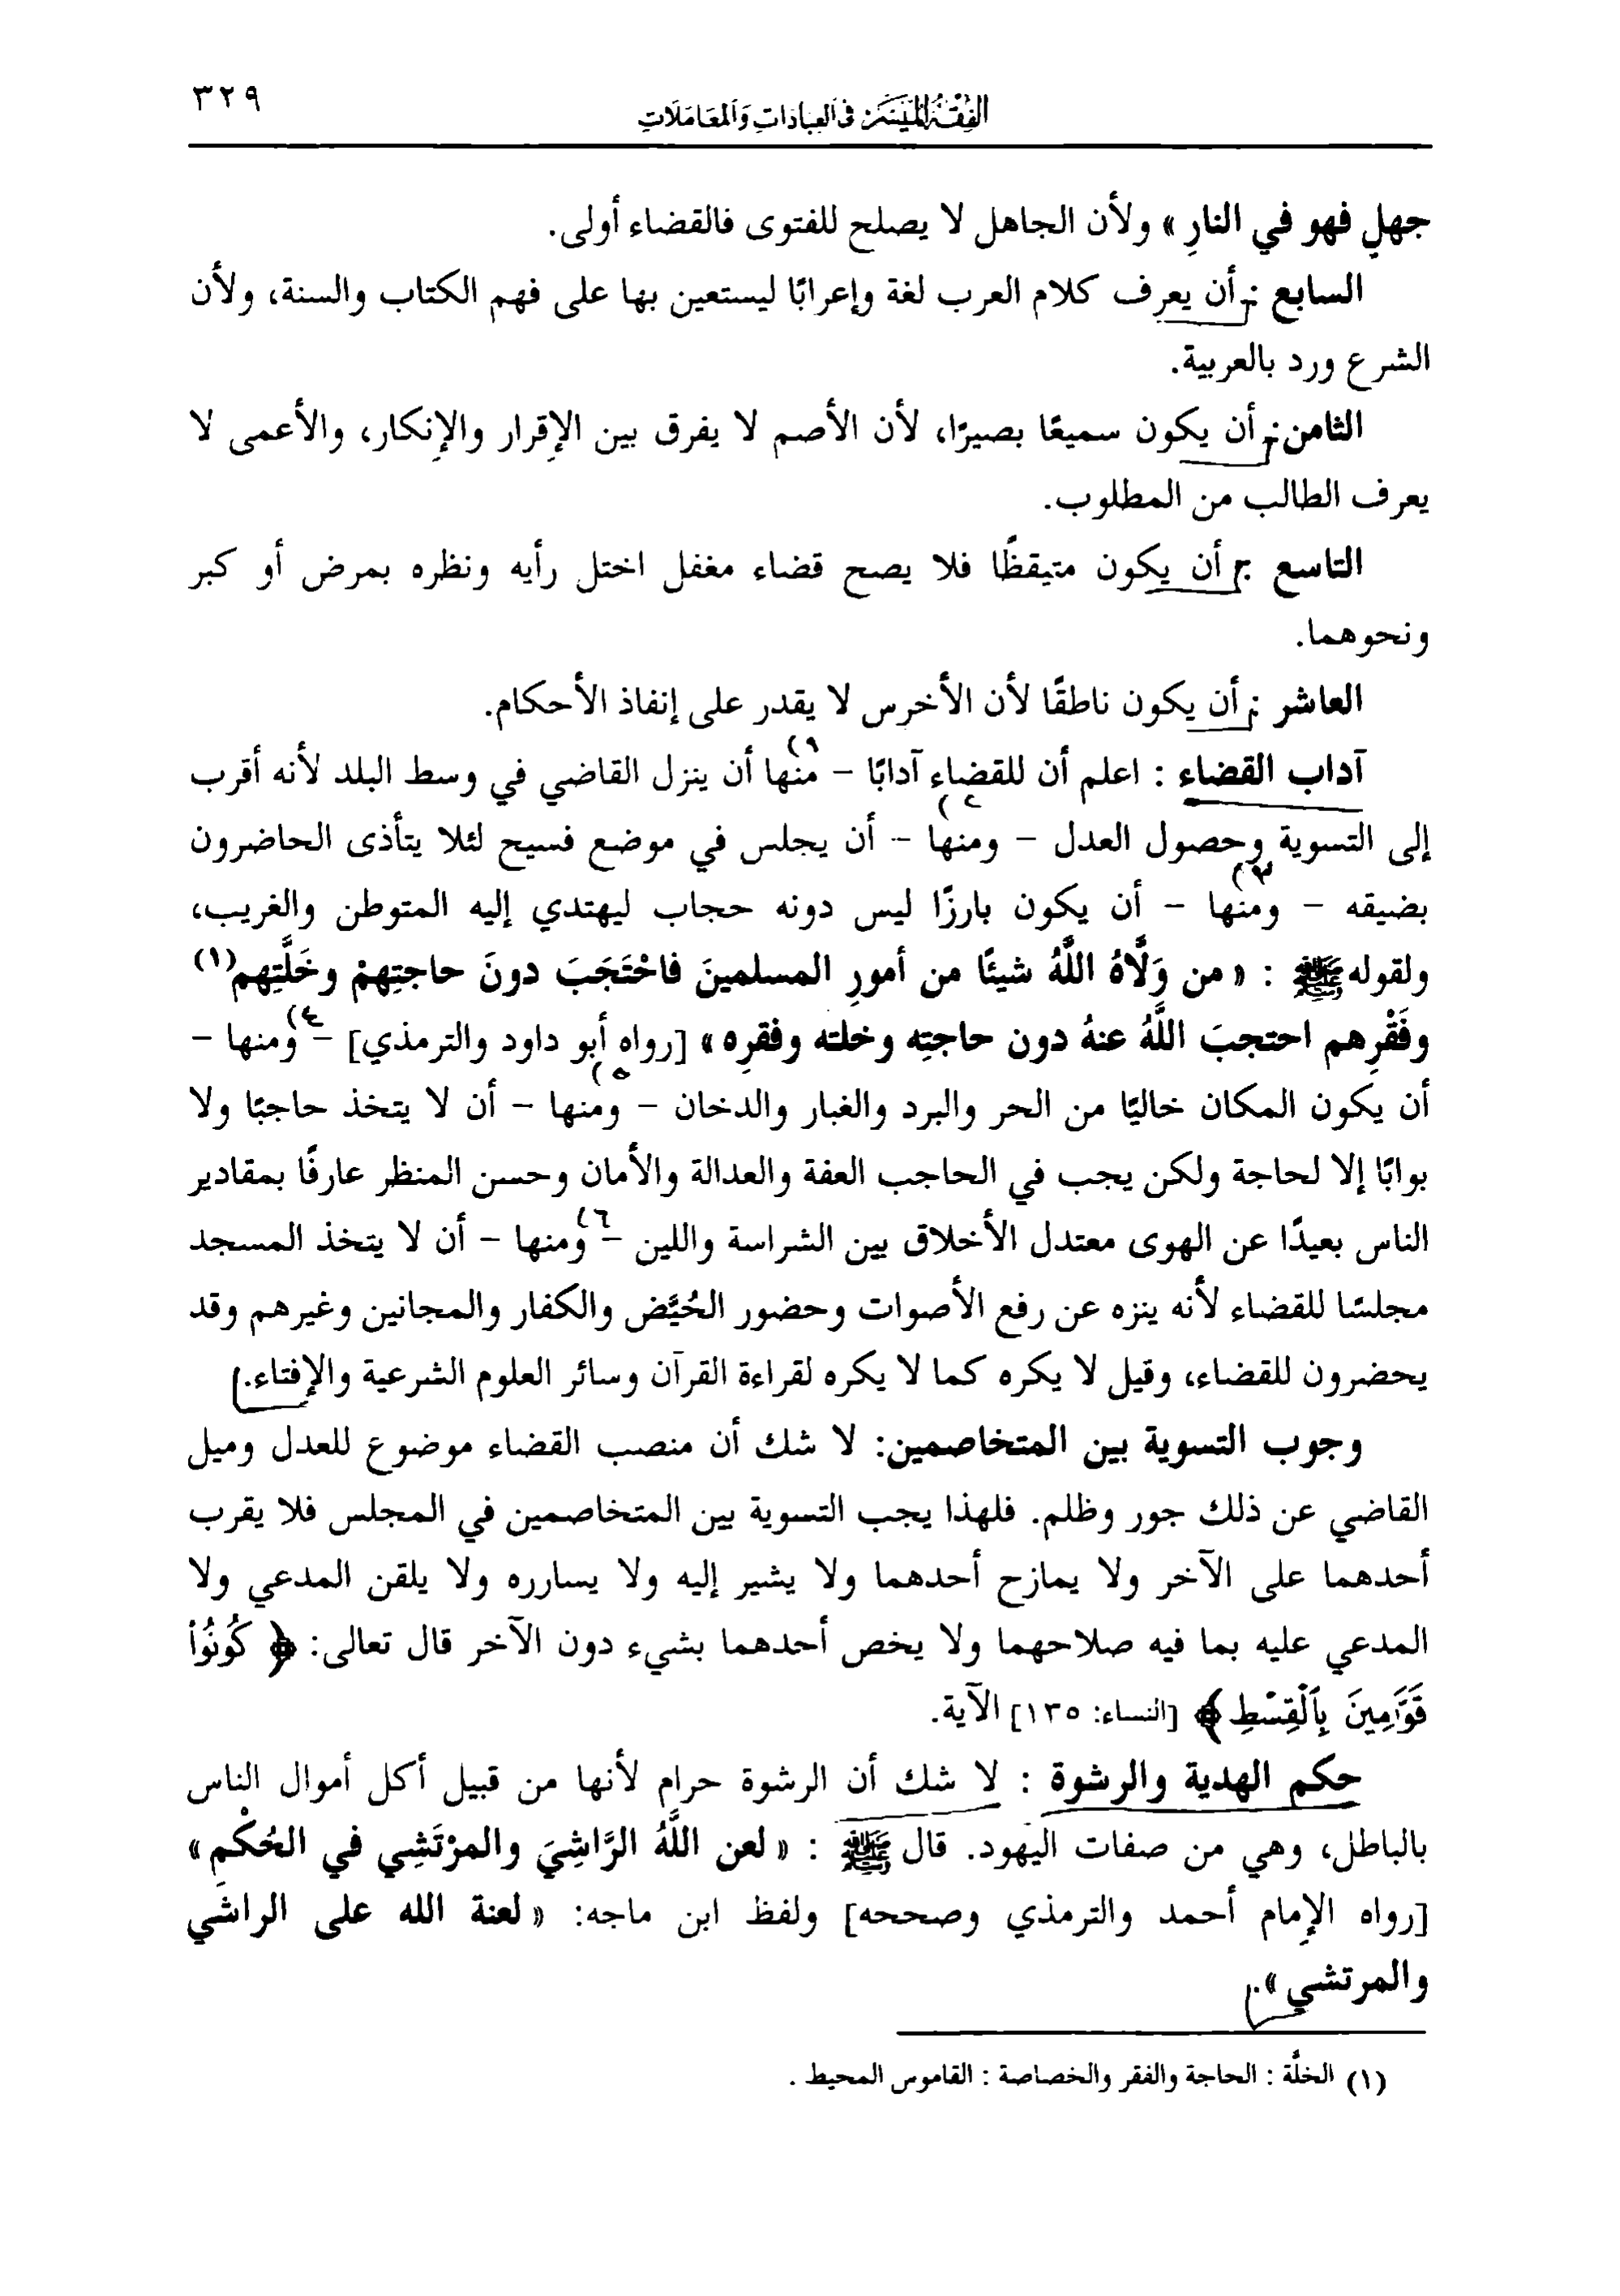 الفقه الميسر في العبادات والمعاملات ٣٢٩
جهلٍ فهو في النارِ » ولأن الجاهل لا يصلح للفتوى فالقضاء أولى.
السابع : أن يعرف كلام العرب لغة وإعرابًا ليستعين بها على فهم الكتاب والسنة، ولأن
الشرع ورد بالعربية.
الثامن: أن يكون سميعًا بصيرًا، لأن الأصم لا يفرق بين الإقرار والإنكار، والأعمى لا
يعرف الطالب من المطلوب.
التاسع : أن يكون متيقظًا فلا يصح قضاء مغفل اختل رأيه ونظره بمرض أو كبر
ونحوهما.
العاشر : أن يكون ناطقًا لأن الأخرس لا يقدر على إنفاذ الأحكام.
آداب القضاء : اعلم أن للقضاء آدابًا – منها أن ينزل القاضي في وسط البلد لأنه أقرب
إلى التسوية وحصول العدل – ومنها – أن يجلس في موضع فسيح لئلا يتأذى الحاضرون
بضيقه – ومنها – أن يكون بارزًا ليس دونه حجاب ليهتدي إليه المتوطن والغريب،
ولقوله ﷺ : « من وَلَّاهُ اللَّهُ شيئًا من أمورِ المسلمينَ فاحْتَجَبَ دونَ حاجتِهمْ وخَلَّتِهم(١)
وفَقْرِهم احتجبَ اللَّهُ عنهُ دون حاجتِه وخلته وفقرِه » [رواه أبو داود والترمذي] – ومنها –
أن يكون المكان خاليًا من الحر والبرد والغبار والدخان – ومنها – أن لا يتخذ حاجبًا ولا
بوابًا إلا لحاجة ولكن يجب في الحاجب العفة والعدالة والأمان وحسن المنظر عارفًا بمقادير
الناس بعيدًا عن الهوى معتدل الأخلاق بين الشراسة واللين – ومنها – أن لا يتخذ المسجد
مجلسًا للقضاء لأنه ينزه عن رفع الأصوات وحضور الحُيَّض والكفار والمجانين وغيرهم وقد
يحضرون للقضاء، وقيل لا يكره كما لا يكره لقراءة القرآن وسائر العلوم الشرعية والإفتاء.
وجوب التسوية بين المتخاصمين: لا شك أن منصب القضاء موضوع للعدل وميل
القاضي عن ذلك جور وظلم. فلهذا يجب التسوية بين المتخاصمين في المجلس فلا يقرب
أحدهما على الآخر ولا يمازح أحدهما ولا يشير إليه ولا يسارره ولا يلقن المدعي ولا
المدعي عليه بما فيه صلاحهما ولا يخص أحدهما بشيء دون الآخر قال تعالى: ﴿ كُونُوا۟
قَوَّٰمِينَ بِٱلْقِسْطِ ﴾ [النساء: ١٣٥] الآية.
حكم الهدية والرشوة : لا شك أن الرشوة حرام لأنها من قبيل أكل أموال الناس
بالباطل، وهي من صفات اليهود. قال ﷺ : « لعن اللَّهُ الرَّاشِيَ والمرْتَشِي في الحُكْمِ »
[رواه الإمام أحمد والترمذي وصححه] ولفظ ابن ماجه: « لعنة الله على الراشي
والمرتشي ».
(١) الخلَّة : الحاجة والفقر والخصاصة : القاموس المحيط .